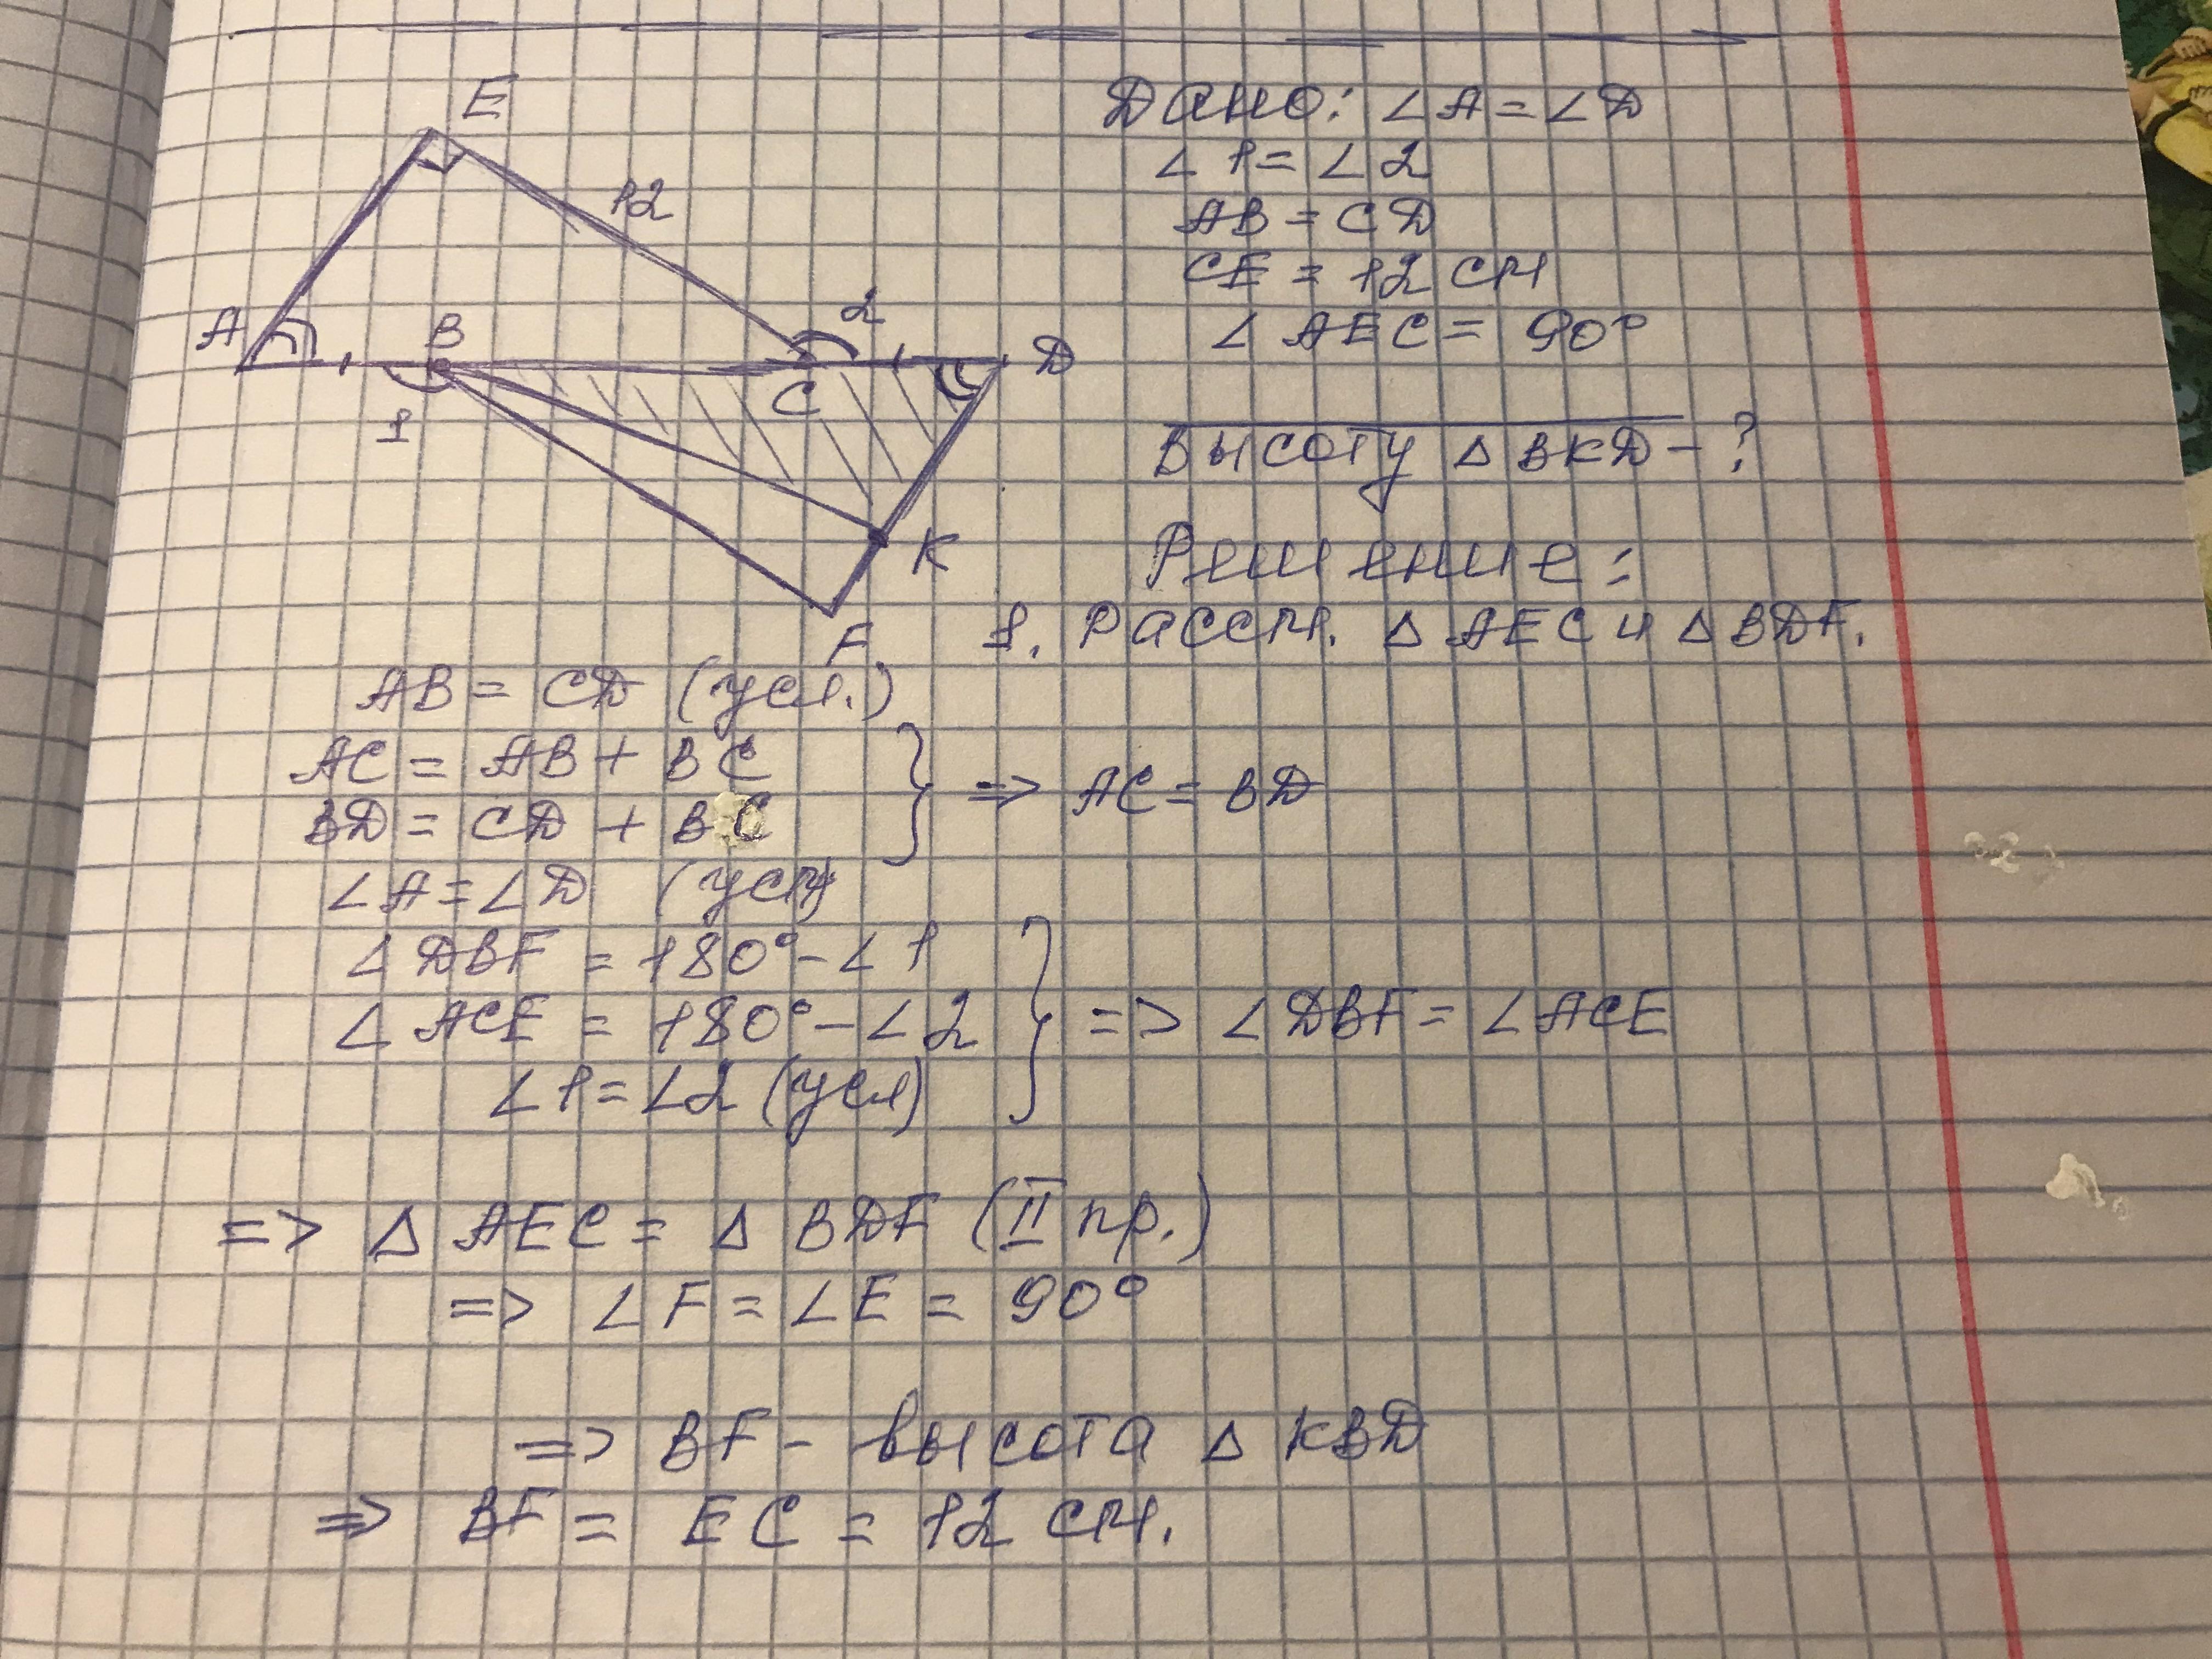 E
12
A
B
2
D
1
C
K
F
Дано: ∠A = ∠D
∠1 = ∠2
AB = CD
CE = 12 см
∠AEC = 90°
Высоту △ BKD - ?
Решение:
1. Рассм. △ AEC и △ BDF.
AB = CD (усл.)
AC = AB + BC
BD = CD + BC
=> AC = BD
∠A = ∠D (усл)
∠DBF = 180° - ∠1
∠ACE = 180° - ∠2
∠1 = ∠2 (усл)
=> ∠DBF = ∠ACE
=> △ AEC = △ BDF (II пр.)
=> ∠F = ∠E = 90°
=> BF - высота △ KBD
=> BF = EC = 12 см.